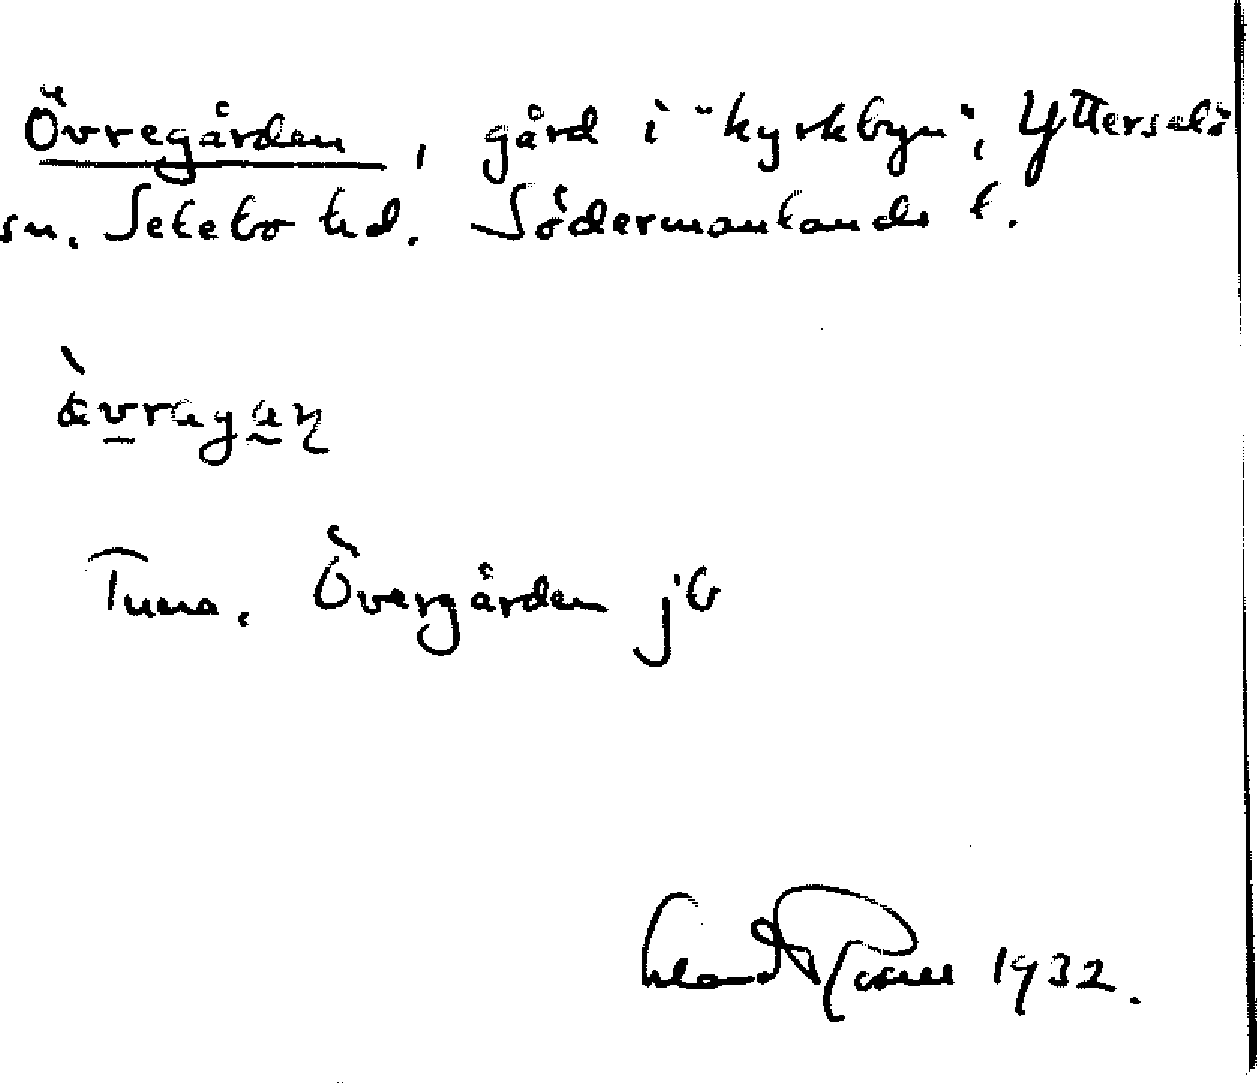 Övregården, gård i "kyrkbyn", Ytterselö
sn. Selebo hd. Södermanlands l.
Tuna, Övergården jb
1932.